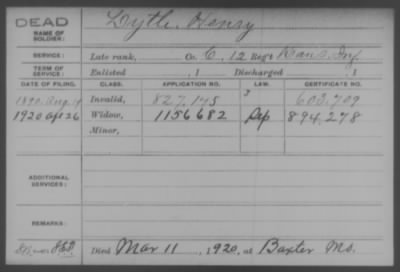 DEAD
NAME OF SOLDIER: Lytle, Henry
SERVICE: Late rank, Co. C, 12 Reg't Kans. Inf.
TERM OF SERVICE: Enlisted , 1 Discharged , 1
DATE OF FILING. CLASS. APPLICATION NO. LAW. CERTIFICATE NO.
1890. Aug. 19 Invalid, 827,175 603.709
1920 Apr 26 Widow, 1156682 894,278
Minor,
ADDITIONAL SERVICES:
REMARKS:
Died Mar 11, 1920, at Baxter Mo.